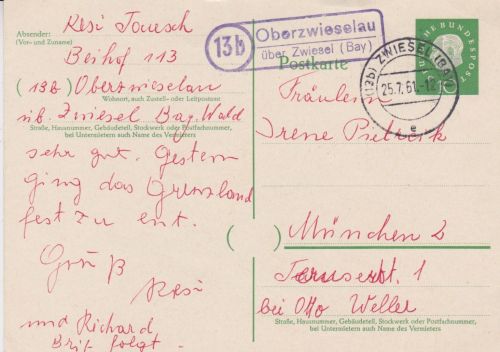 Absender:
(Vor- und Zuname)
Resi
Beihof 113
(13b) Oberzwieselau
Wohnort, auch Zustell- oder Leitpostamt
üb. Zwiesel Bay. Wald
Straße, Hausnummer, Gebäudeteil, Stockwerk oder Postfachnummer,
bei Untermietern auch Name des Vermieters
sehr gut. Gestern
ging das Grenzland
fest zu ent.
Gruß
Resi
und Richard
Brif folgt.
13b
Oberzwieselau
über Zwiesel (Bay)
Postkarte
DEUTSCHE BUNDESPOST
10
(13b) ZWIESEL (BAY)
25.7.61.-12
e
Fräulein
Irene
( )
München 2
1
bei Otto Weller
Straße, Hausnummer, Gebäudeteil, Stockwerk oder Postfachnummer,
bei Untermietern auch Name des Vermieters